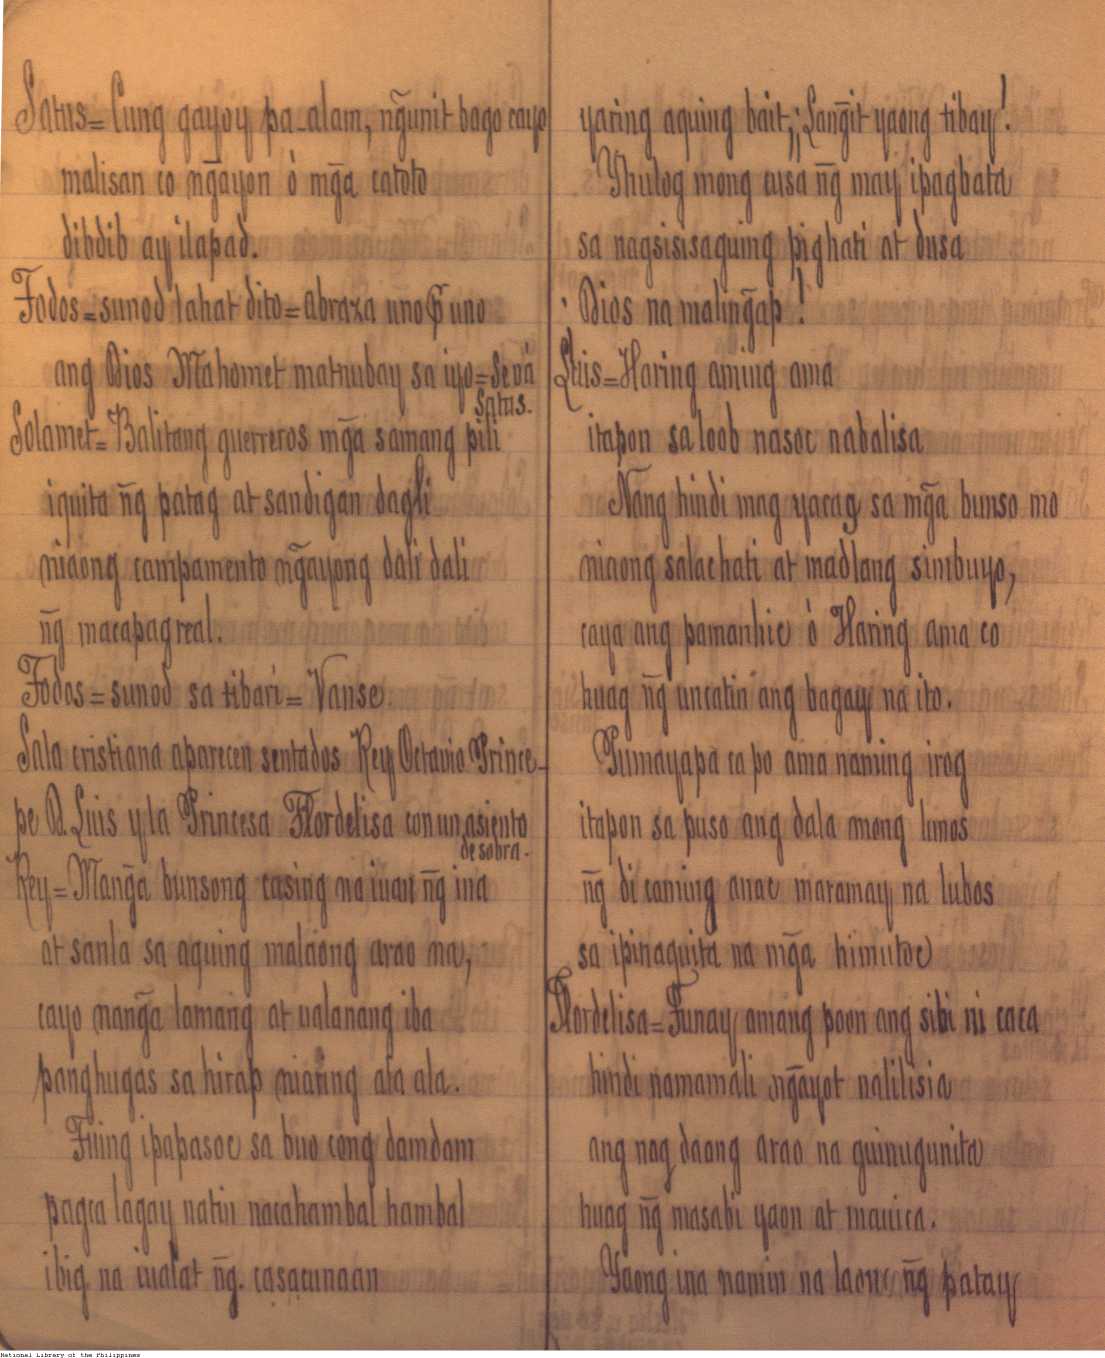 Satus = Cung gayoy pa-alam, ng̃unit bago cayo
malisan co ng̃ayon ò mg̃a catoto
dibdib ay ilapad.
Todos = sunod lahat dito = abraza uno p̃r uno
ang Dios Mahomet matnubay sa iyo = se vá
Satus.
Solamet = Balitang guerreros mg̃a samang pili
iquita ñg patag at sandigan dagli
niaong campamento ng̃ayong dali dali
ñg macapagreal.
Todos = sunod sa tibari = Vanse.
Sala cristiana aparecen sentados Rey Octavio Prince-
pe D. Luis y la Princesa Flordelisa con un asiento
de sobra.
Rey = Mang̃a bunsong casing na iuan ñg ina
at sanla sa aquing malaong arao na,
cayo nang̃a lamang at ualanang iba
panghugas sa hirap niaring ala ala.
Tuing ipapasoc sa buo cong damdam
pagca lagay natin nacahambal hambal
ibig na iualat ñg. casacunaan
yaring aquing bait, ¡Lang̃it yaong tibay!
Yhulog mong cusa ñg may ipagbata
sa nagsisisaguing pighati at dusa
¡Dios na maling̃ap!
Luis = Haring aming ama
itapon sa loob nasoc nabalisa
Nang hindi mag yacag sa mg̃a bunso mo
niaong salachati at madlang simbuyo,
caya ang pamanhic ò Haring ama co
huag ñg uncatin ang bagay na ito.
Pumayapa ca po ama naming irog
itapon sa puso ang dala mong lunos
ñg di caming anac maramay na lubos
sa ipinaquita na mg̃a himutoc
Flordelisa = Tunay amang poon ang sibi ni caca
hindi namamali ng̃ayot nalilisia
ang nag daang arao na guinugunita
huag ñg masabi yaon at mauica.
Yaong ina namin na laon ñg patay
National Library of the Philippines